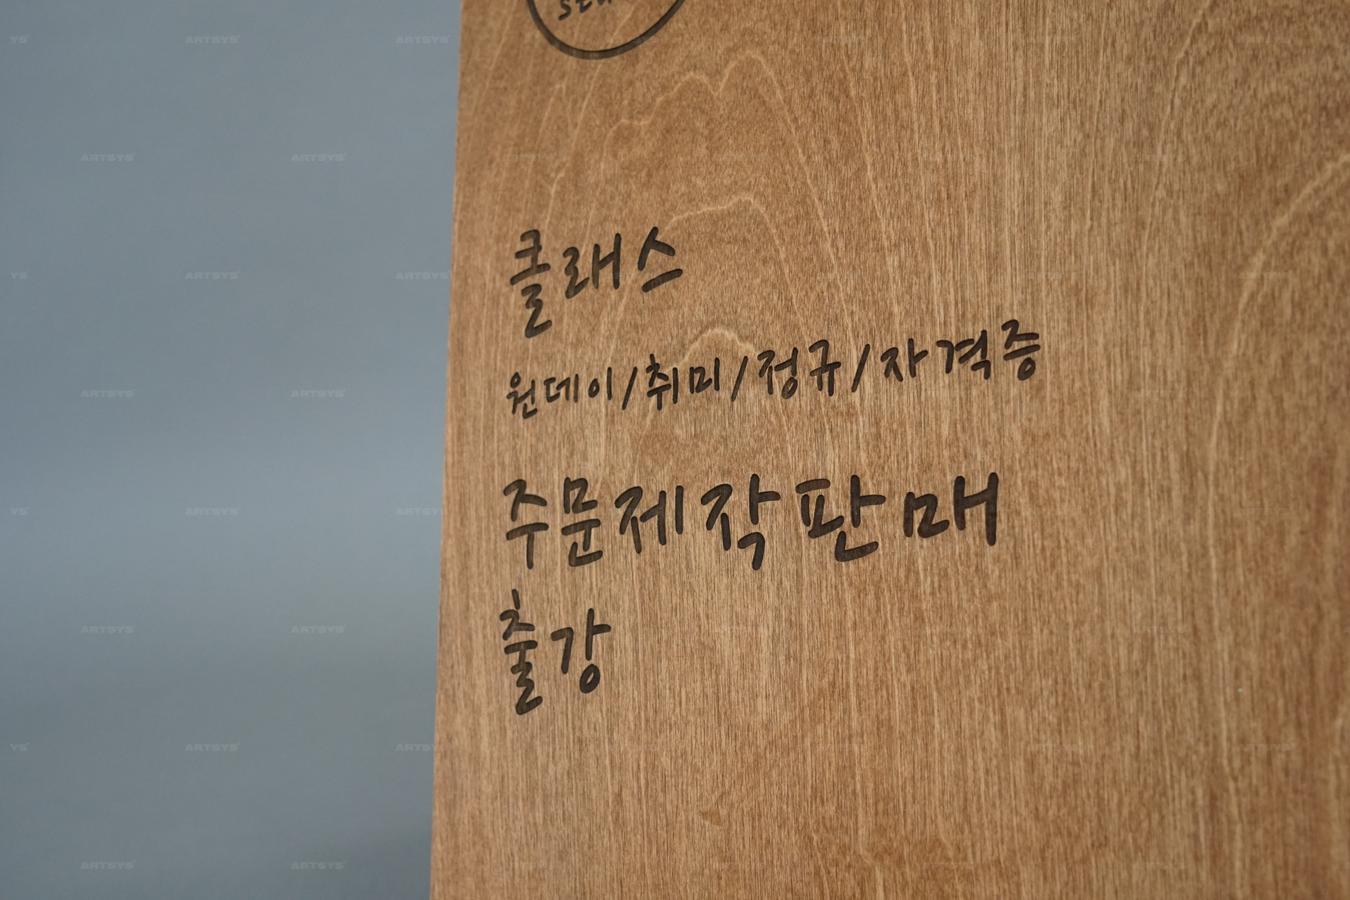 클래스
원데이/취미/정규/자격증
주문제작판매
출강